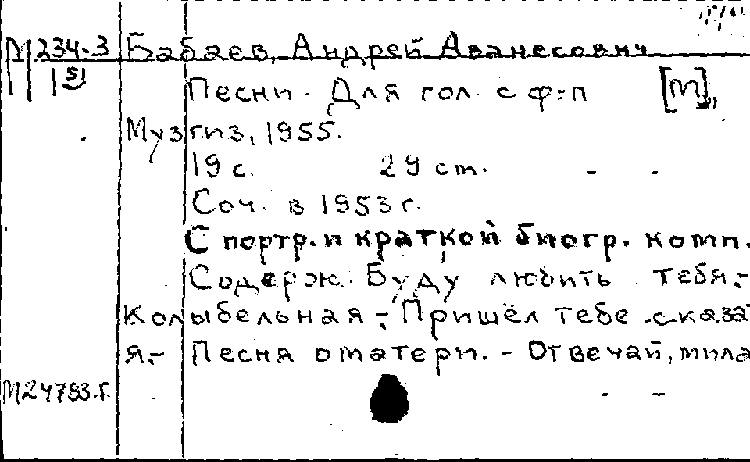 М 234-3 Бабаев, Андрей Аванесович
151 Песни. Для гол. с ф-п [М],
Музгиз, 1955.
19 с. 29 см.
Соч. в 1953 г.
С портр. и краткой биогр. комп.
Содерж. Буду любить тебя.-
Колыбельная.- Пришёл тебе сказа
я.- Песня о матери. - Отвечай, мила